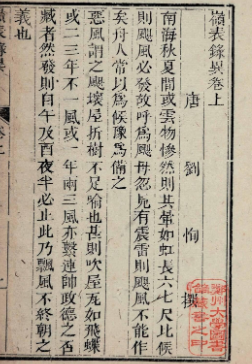 嶺表錄異卷上
唐 劉恂 撰
南海秋夏間或雲物慘然則其暈如虹長六七尺比候
則颶風必發故呼為颶母忽見有震雷則颶風不能作
矣舟人常以為候豫為備之
惡風謂之颶壞屋折樹不足喻也甚則吹屋瓦如飛蝶
或二三年不一風或一年兩三風亦繫連帥政德之否
臧者然發則自午及酉夜半必止此乃飄風不終朝之
義也